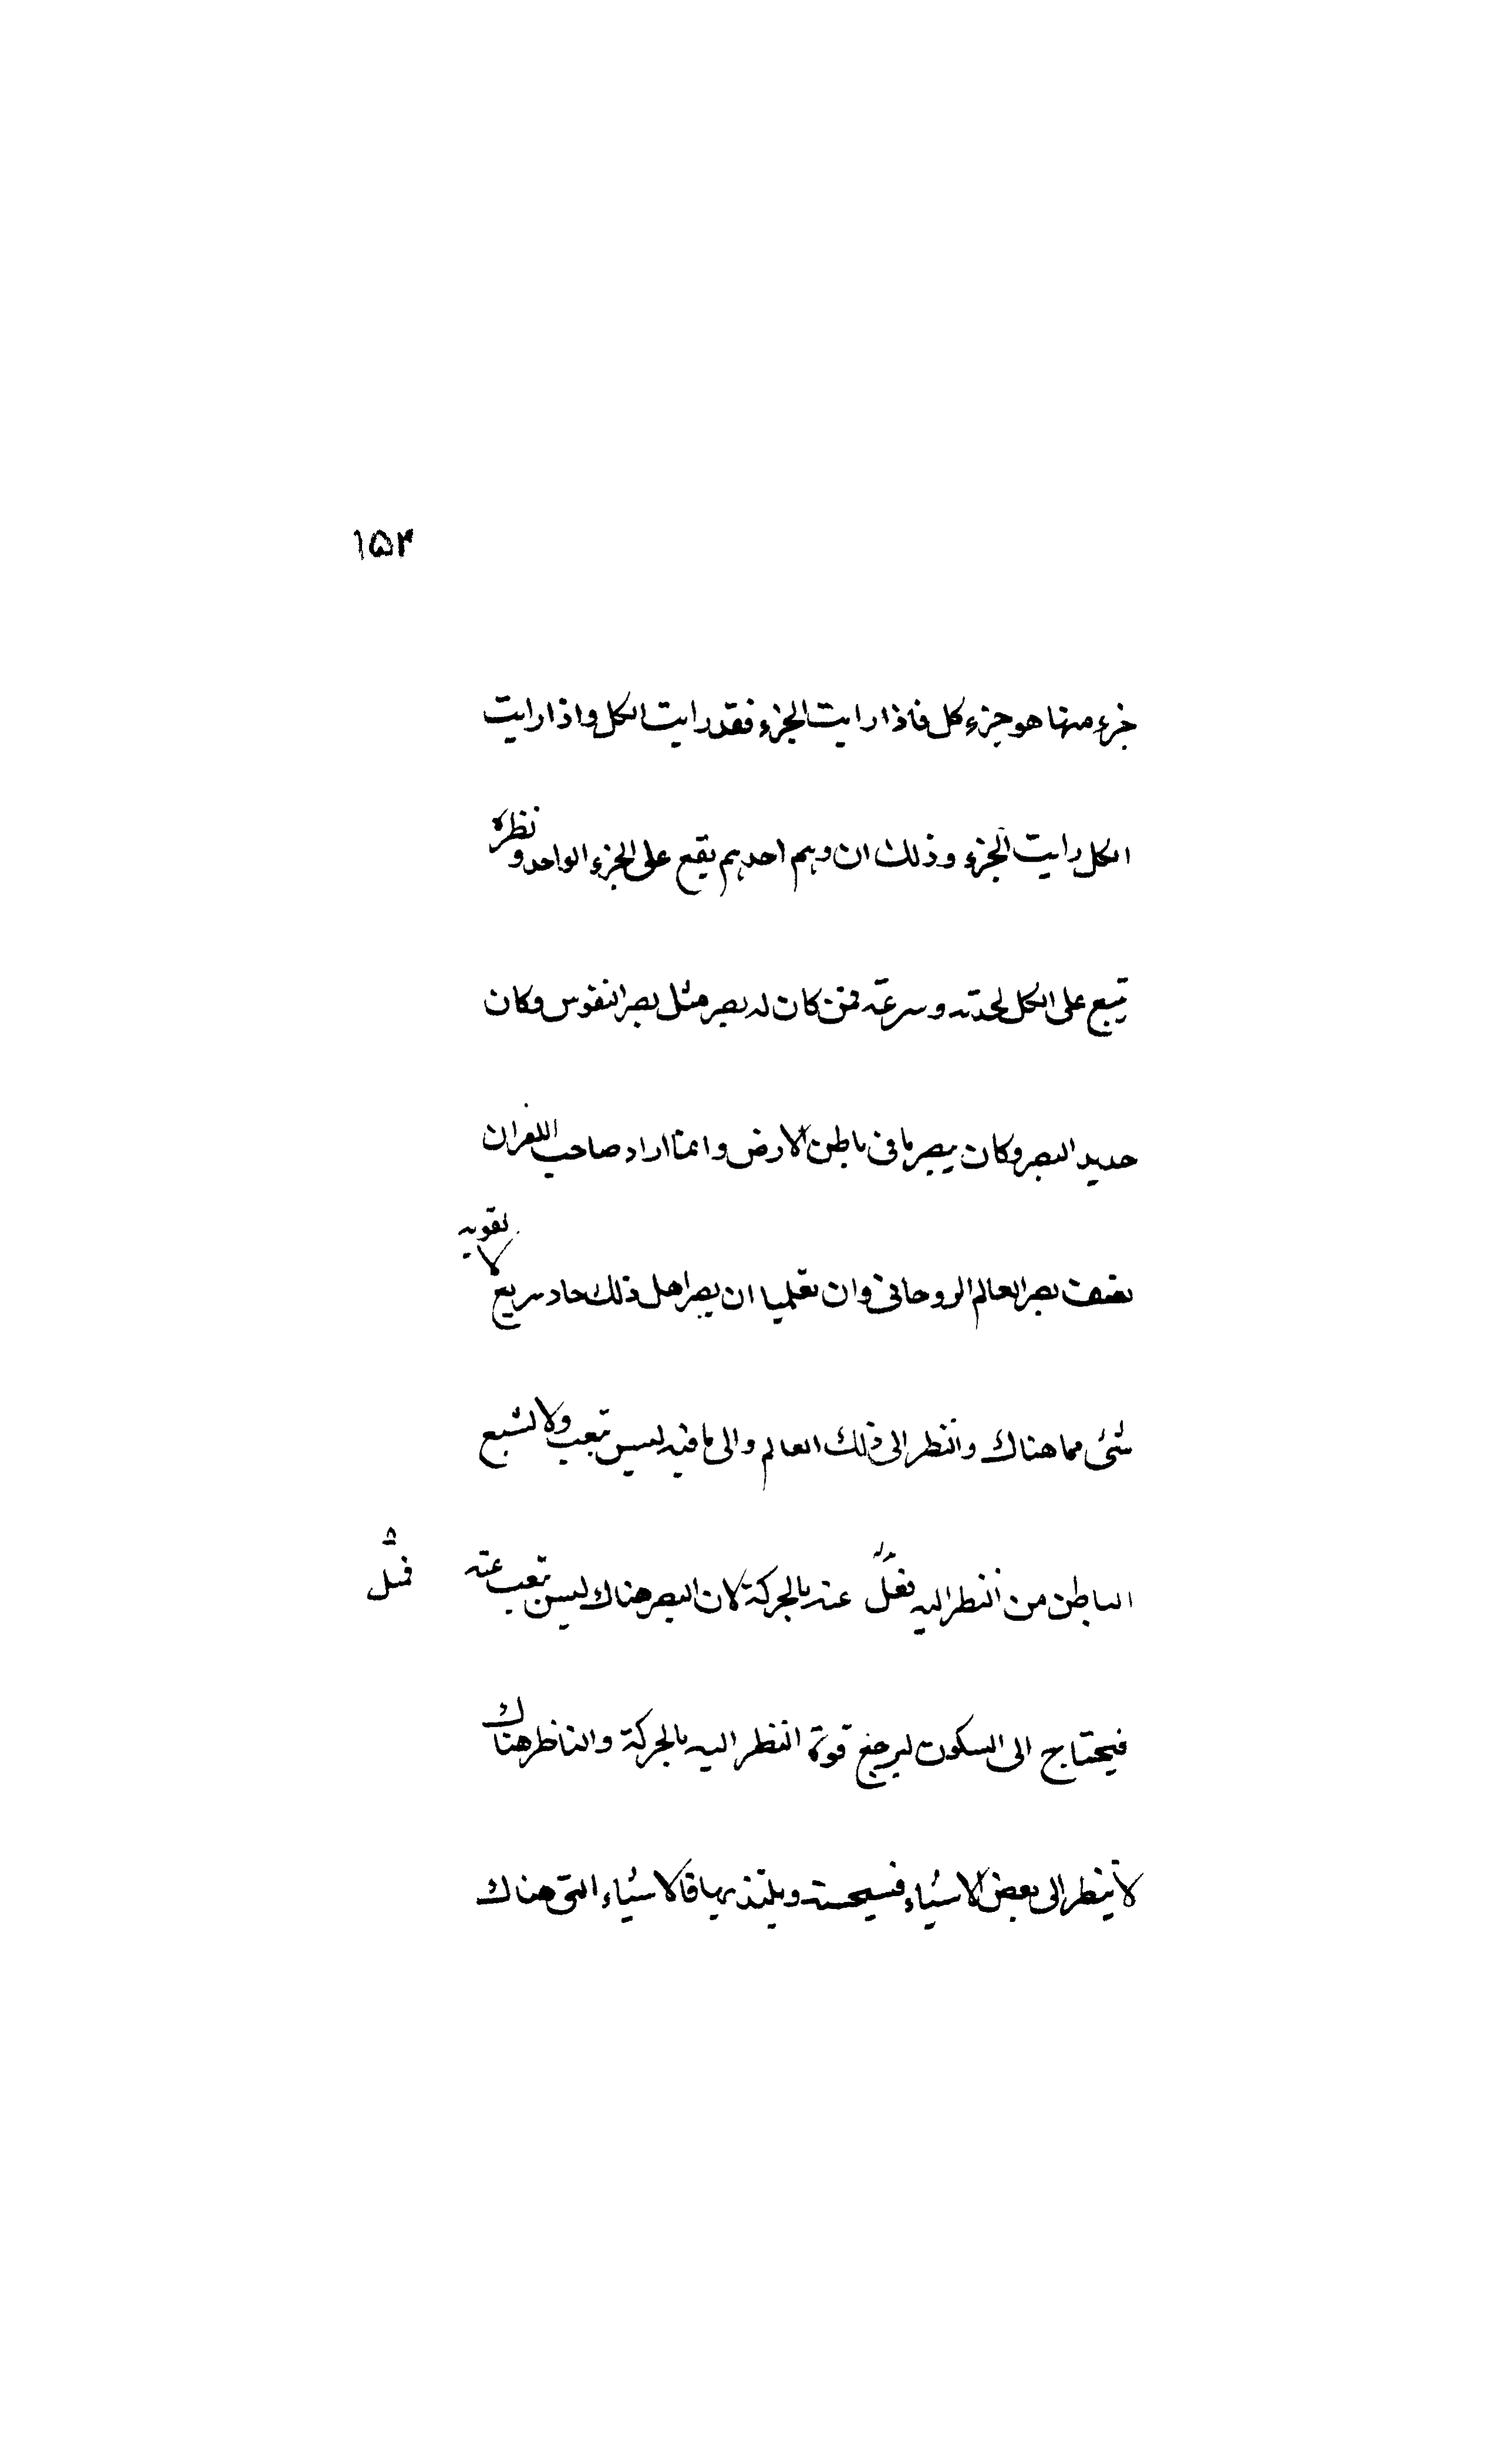 ١٥٣
جزء منها هو جزء كل فاذا رايت الجزء فقد رايت الكل واذا رايت
الكل رايت الجزء وذلك ان وهم احدهم يقع على الجزء الواحد ونظره
يتبع على الكل لحدته وسرعته فمن كان له بصر مثل بصر النفوس وكان
حديد البصر وكان يبصر ما فى باطن الارض وانما اراد صاحب اللغز ان
يصف بصر العالم الروحانى وان يعلمنا ان بصر اهل ذلك حاد سريع لا يفوته
شئ مما هناك والنظر الى ذلك العالم والى ما فيه ليس بتعب ولا لشبع
الباطن من النظر اليه عنه بالحركة لان البصر هناك ليس بتعب عنه
فيحتاج الى السكون ليرجع قوة النظر اليه بالحركة والناظر هناك
لا ينظر الى بعض الاشياء ويلتذ بها فالاشياء التى هناك